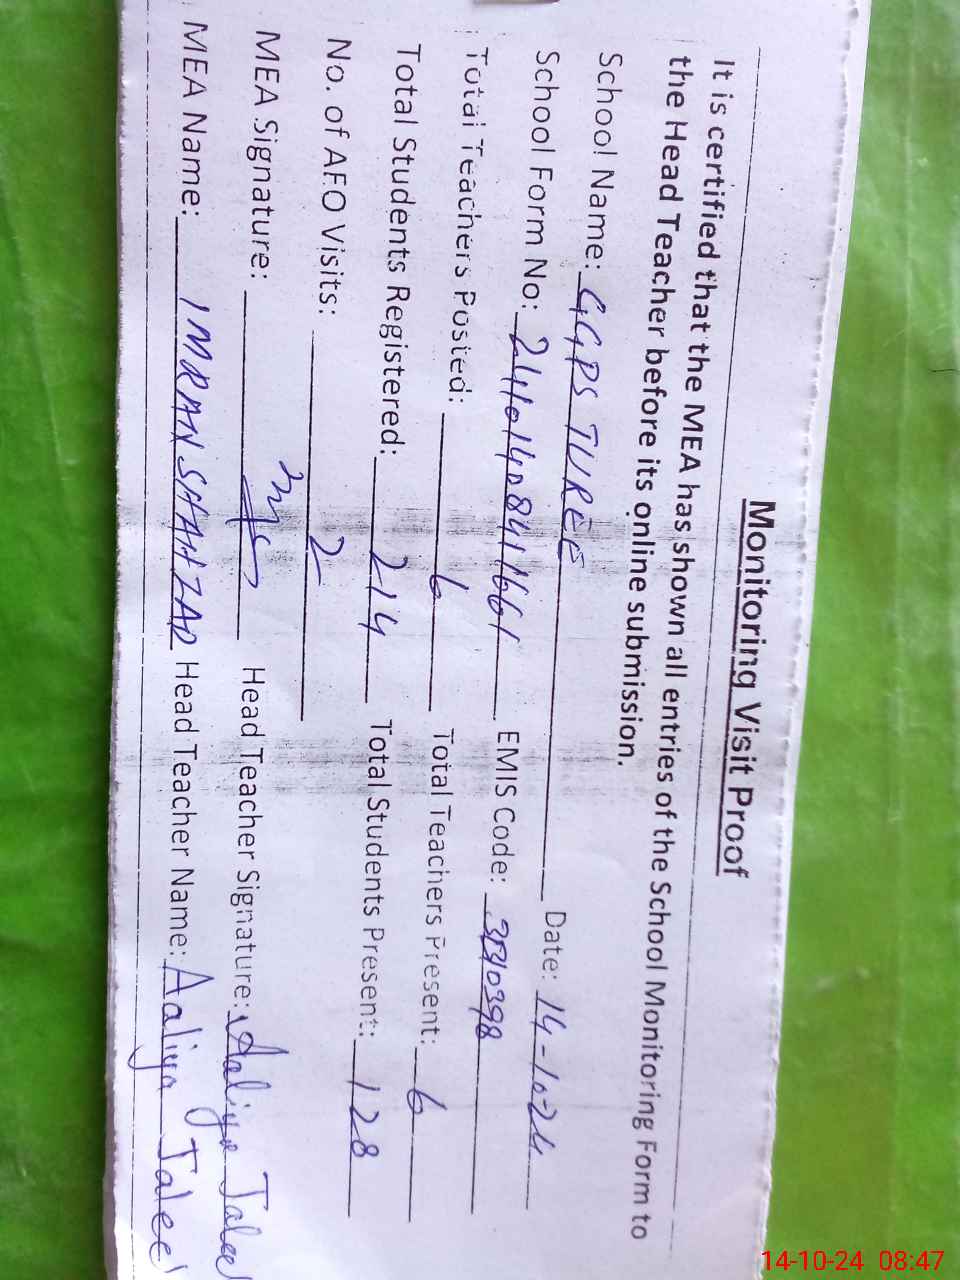 Monitoring Visit Proof
It is certified that the MEA has shown all entries of the School Monitoring Form to
the Head Teacher before its online submission.
School Name: GGPS TUREE Date: 14-10-24
School Form No: 241014084166 1 EMIS Code: 37310398
Total Teachers Posted: 6 Total Teachers Present: 6
Total Students Registered: 214 Total Students Present: 128
No. of AEO Visits: 2
MEA Signature: Head Teacher Signature: Aaliya Jaleel
MEA Name: IMRAN SHAHZAD Head Teacher Name: Aaliya Jaleel
14-10-24 08:47